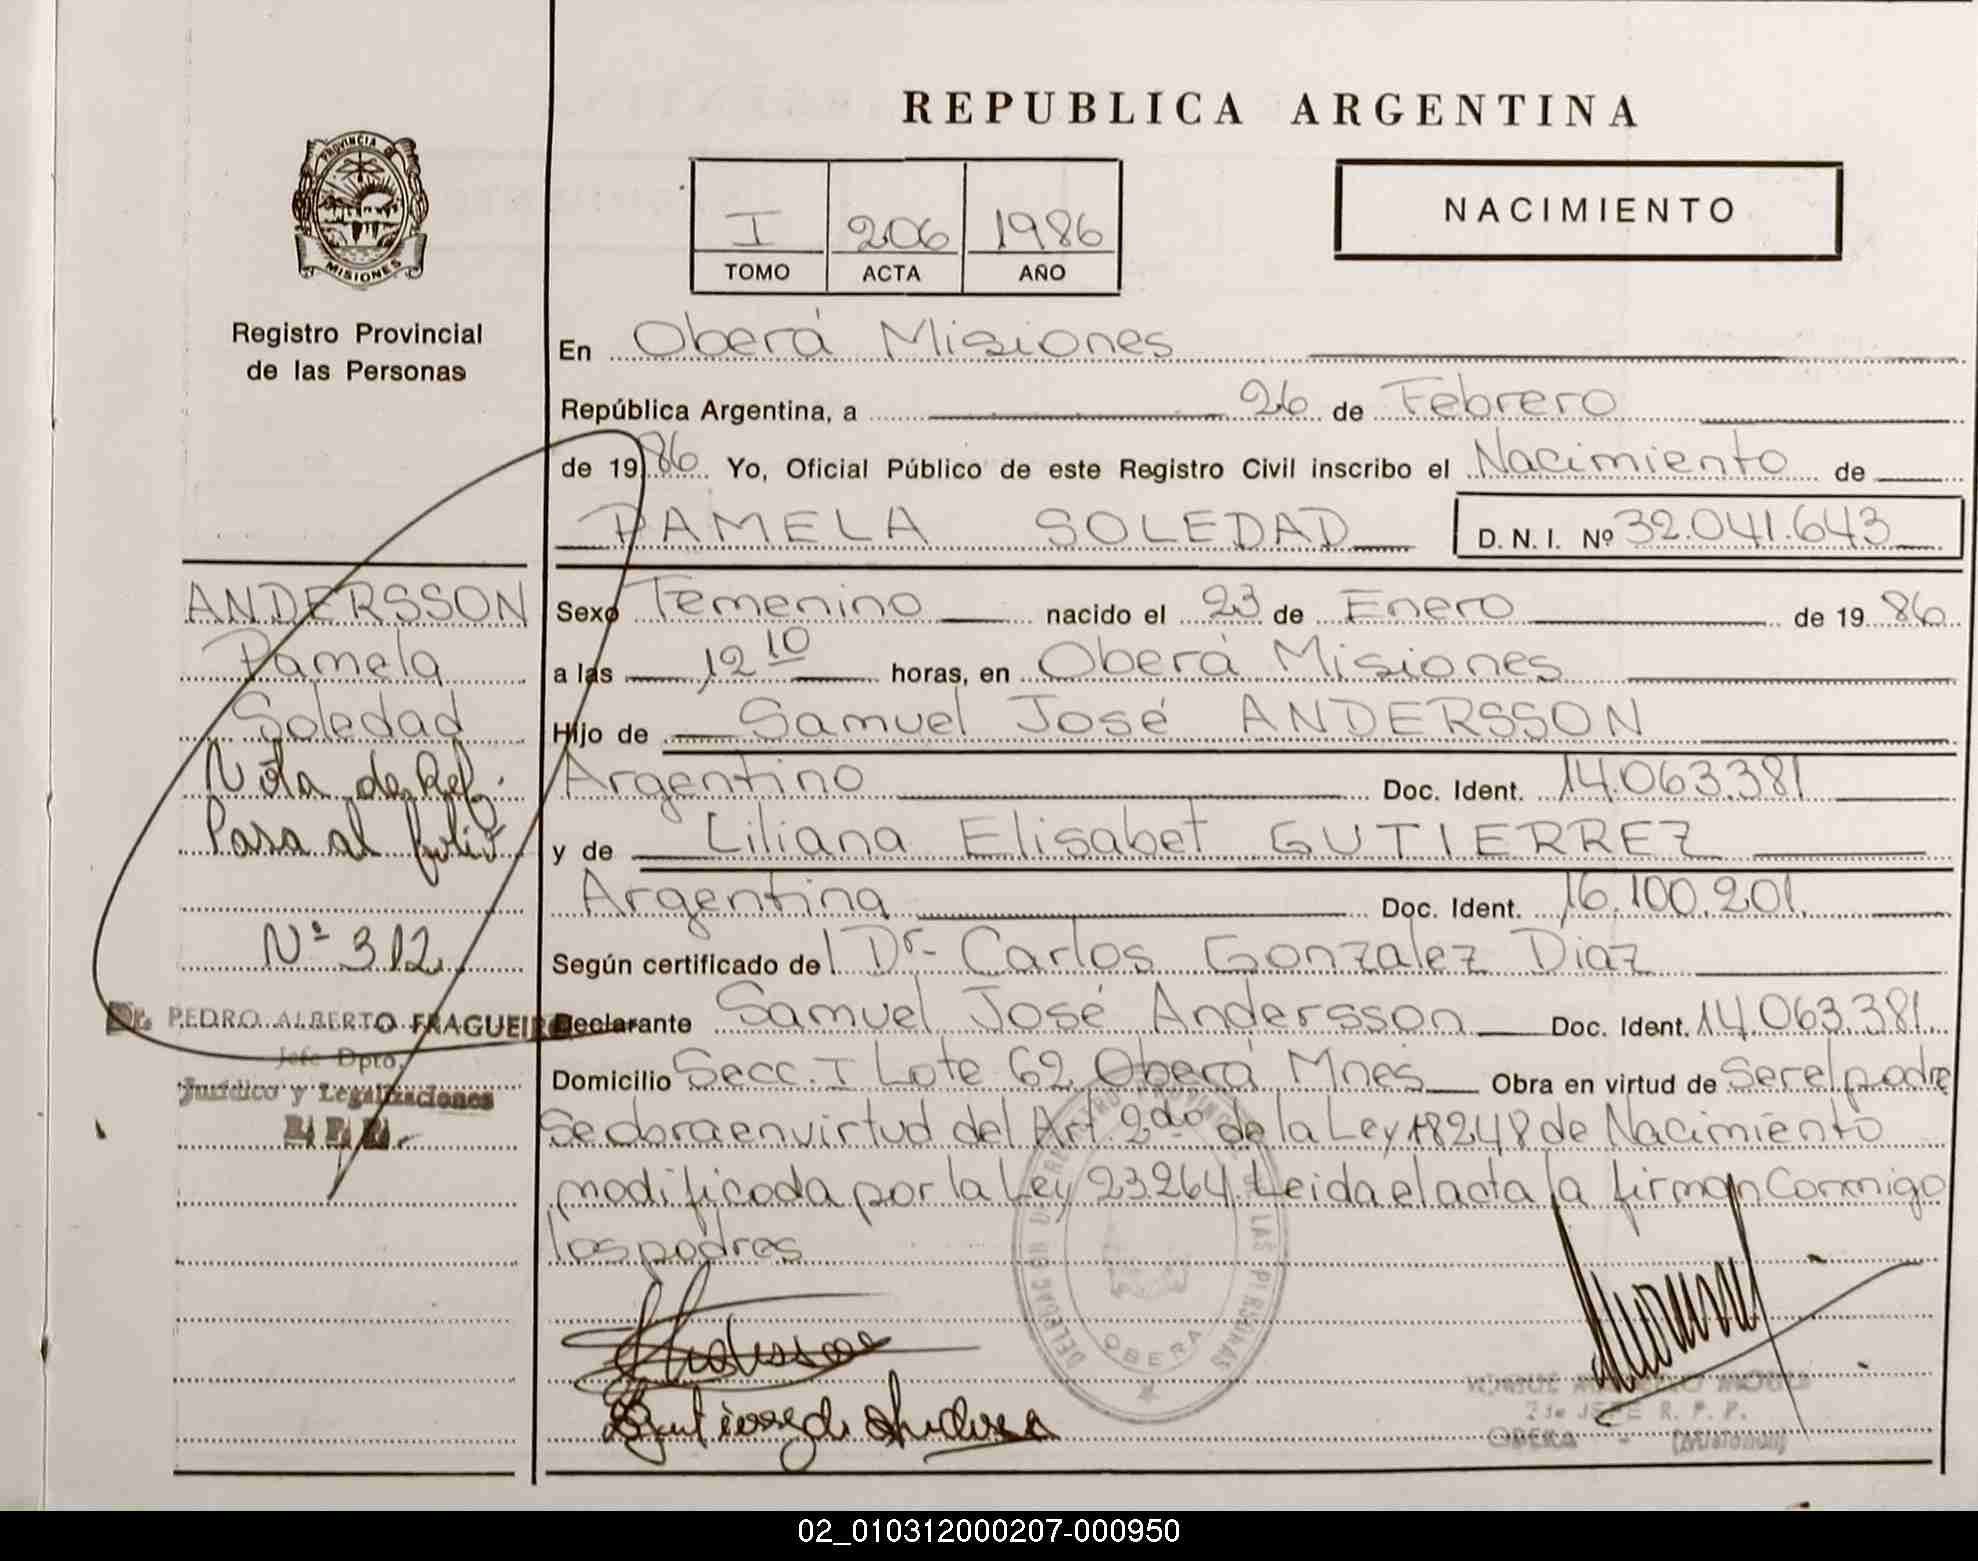 REPUBLICA ARGENTINA
PROVINCIA DE
MISIONES
Registro Provincial
de las Personas
I 206 1986
TOMO ACTA AÑO
NACIMIENTO
En Oberá Misiones
República Argentina, a 26 de Febrero
de 1986 Yo, Oficial Público de este Registro Civil inscribo el Nacimiento de
PAMELA SOLEDAD D. N. I. Nº 32.041.643
ANDERSSON
Pamela
Soledad
Nota de Ref.
Pasa al folio
Nº 312
Dr. PEDRO ALBERTO FRAGUEIRO
Jefe Dpto.
Jurídico y Legalizaciones
R. P. P.
Sexo Femenino nacido el 23 de Enero de 1986
a las 12 10 horas, en Oberá Misiones
Hijo de Samuel José ANDERSSON
Argentino Doc. Ident. 14.063.381
y de Liliana Elisabet GUTIERREZ
Argentina Doc. Ident. 16.100.201.
Según certificado del Dr- Carlos Gonzalez Diaz
Declarante Samuel José Andersson Doc. Ident. 14.063.381
Domicilio Secc. I Lote 62 Oberá Mnes Obra en virtud de Ser el padre
Se obra en virtud del Art. 2do de la Ley 18248 de Nacimiento
modificada por la Ley 23.264. Leida el acta la firman Conmigo
los padres
DELEGACION DEL REGISTRO PROVINCIAL DE LAS PERSONAS
OBERA
Gutierrez de Andersson
2do JEFE R. P. P.
OBERA - (MISIONES)
02_010312000207-000950